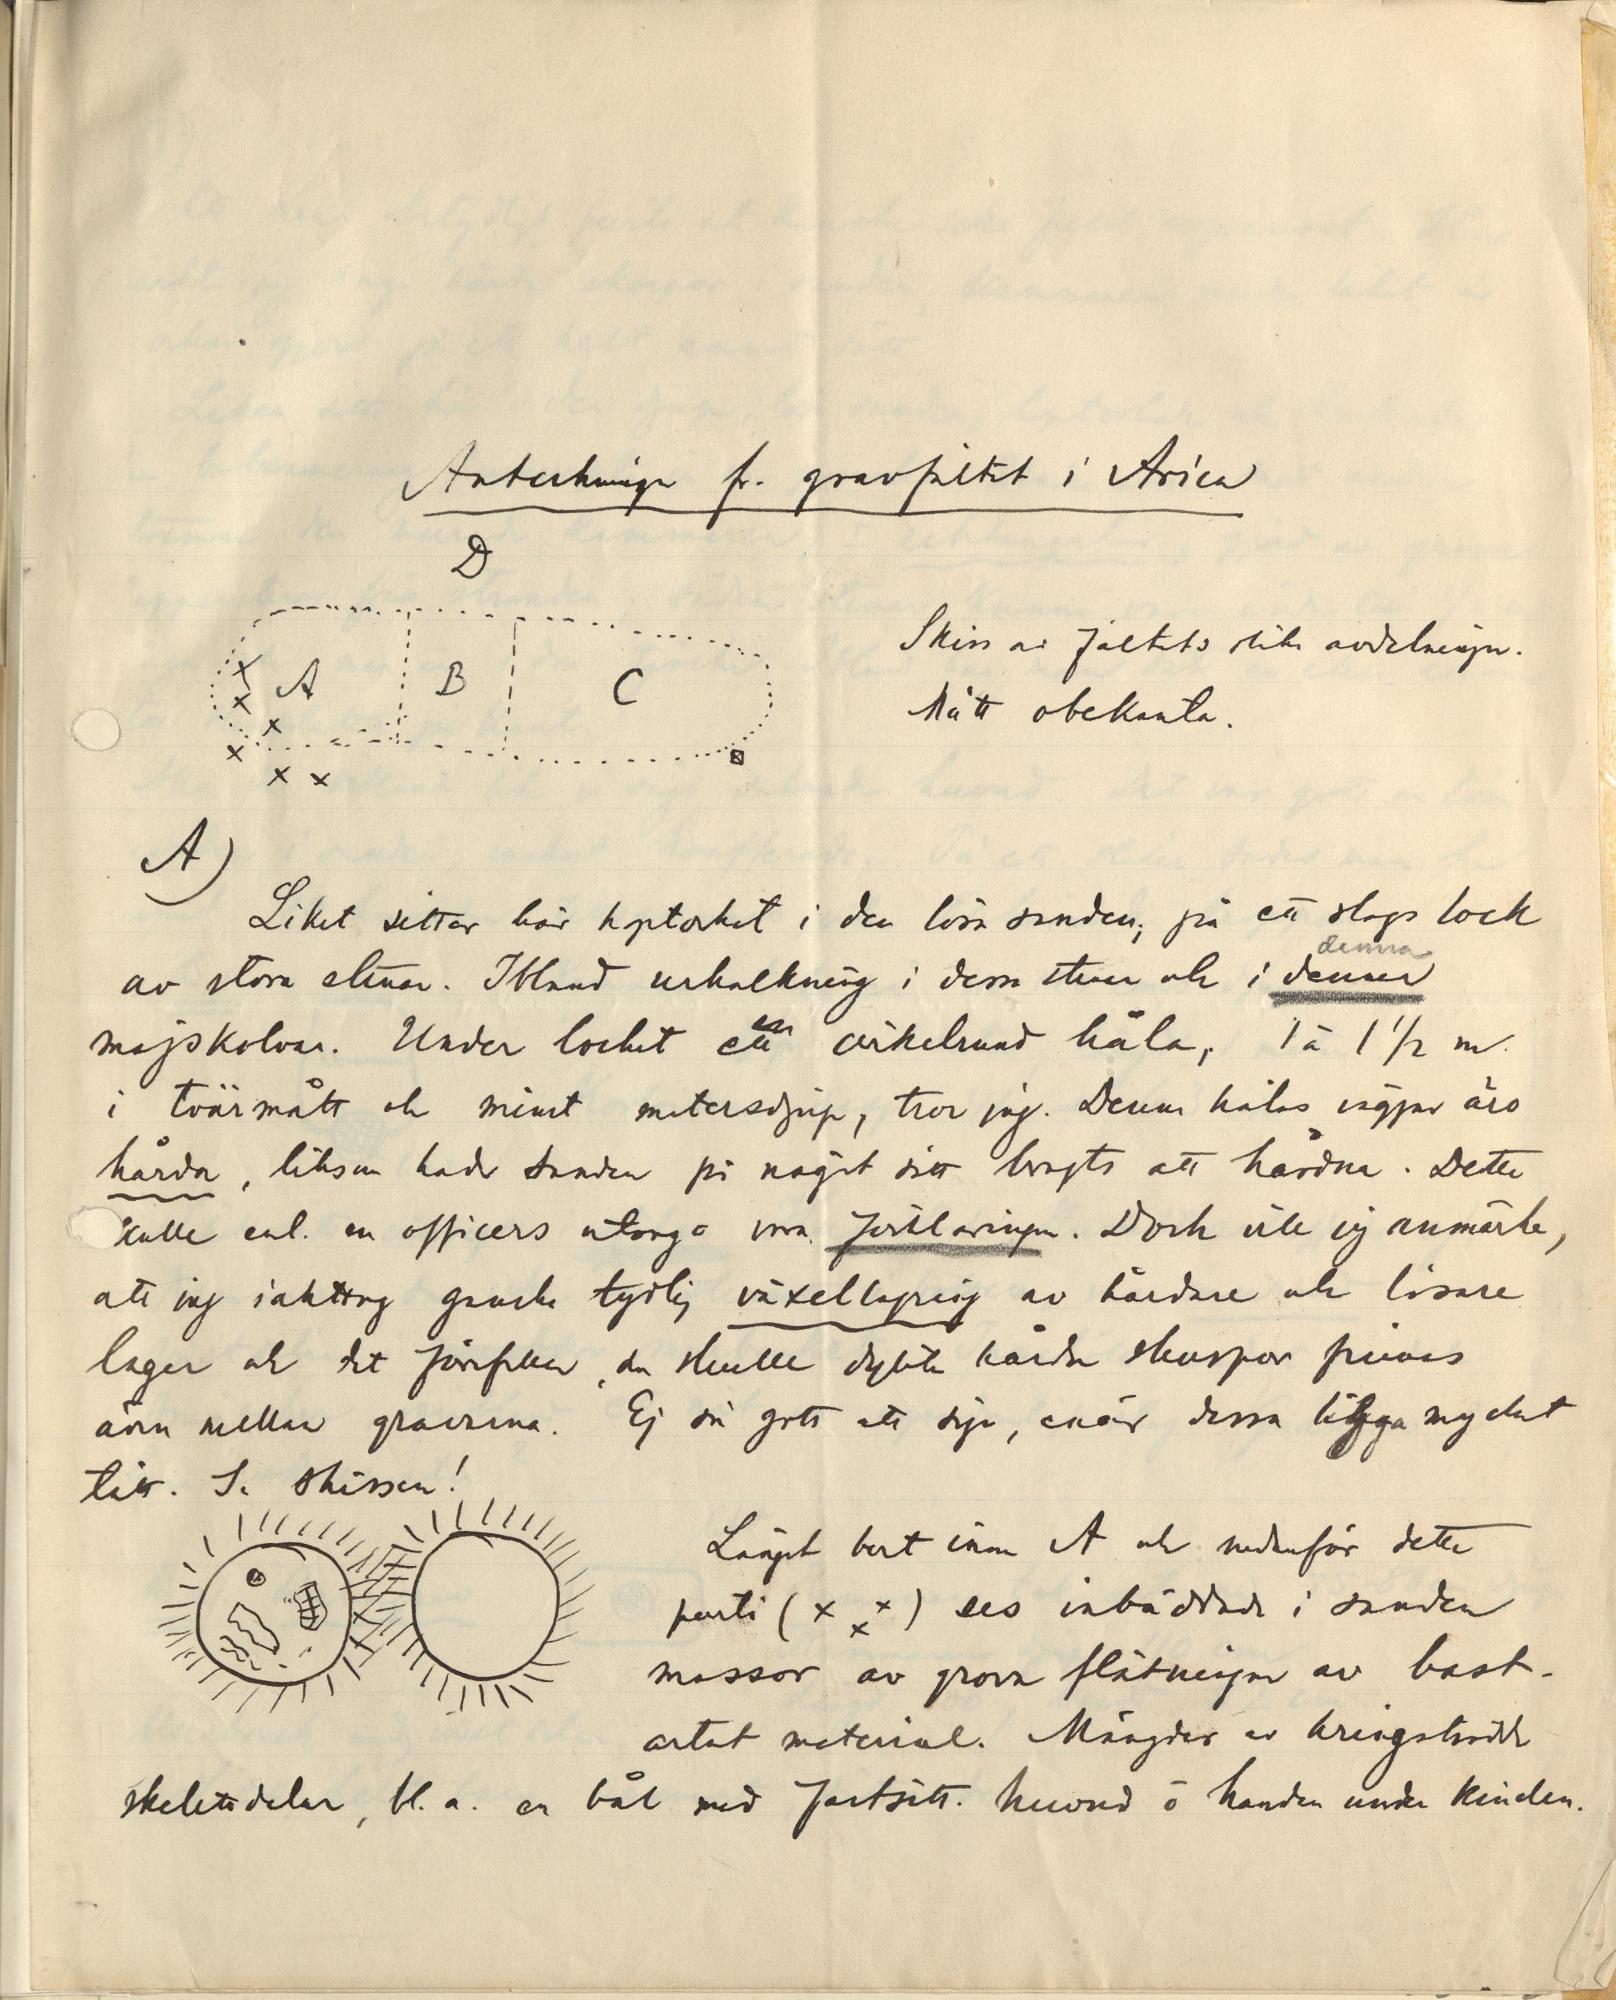 Anteckningar fr. gravfältet i Arica
D
A B C
Skiss av fältets olika avdelningar.
Mått obekanta.
A)
Liket sitter här hoptorkat i den lösa sanden, på ett slags lock
denna
av stora stenar. Ibland urholkning i dessa stenar och i denna
majskolvar. Under locket en cirkelrund håla, 1 à 1 1/2 m.
i tvärmått och minst metersdjup, tror jag. Denna hålas väggar äro
hårda, liksom hade sanden på något sätt bragts att hårdna. Detta
skulle enl. en officers utsago vara förklaringen. Dock vill jag anmärka,
att jag iakttog ganska tydlig växellagring av hårdare och lösare
lager och det förefaller, du skulle dylika hårda skorpor finnas
även mellan gravarna. Ej så gott att säga, enär dessa ligga mycket
tätt. Se skissen!
Längst bort inom A och nedanför detta
parti (x x x) ses inbäddade i sanden
massor av grova flätningar av bast-
artat material. Mängder av kringströdda
skelettdelar, bl. a. en bål med fastsitt. huvud o handen under kinden.